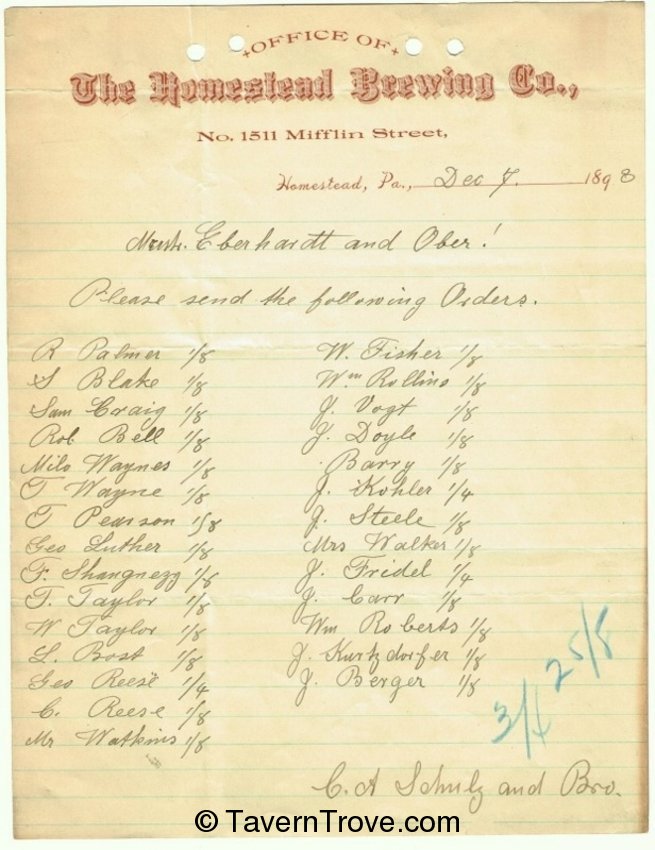 OFFICE OF
The Homestead Brewing Co.,
No. 1511 Mifflin Street,
Homestead, Pa., Dec 7 1898
Eberhardt and Ober!
Please send the following Orders.
R Palmer 1/8
S Blake 1/8
Sam Craig 1/8
Rob Bell 1/8
Milo Waynes 1/8
T Wayne 1/8
T Pearson 1/8
Geo Luther 1/8
F. Shangnegg 1/8
T. Taylor 1/8
W Taylor 1/8
L. Bost 1/8
Geo Reese 1/4
C. Reese 1/8
Mr Watkins 1/8
W. Fisher 1/8
Wm Rollins 1/8
J. Vogt 1/8
J. Doyle 1/8
Barry 1/8
J. Kohler 1/4
J. Steele 1/8
Mrs Walker 1/8
J. Fridel 1/4
J. Carr 1/8
Wm Roberts 1/8
J. Kurtzdorfer 1/8
J. Berger 1/8
25/8
3/4
C. A Schulz and Bro.
© TavernTrove.com